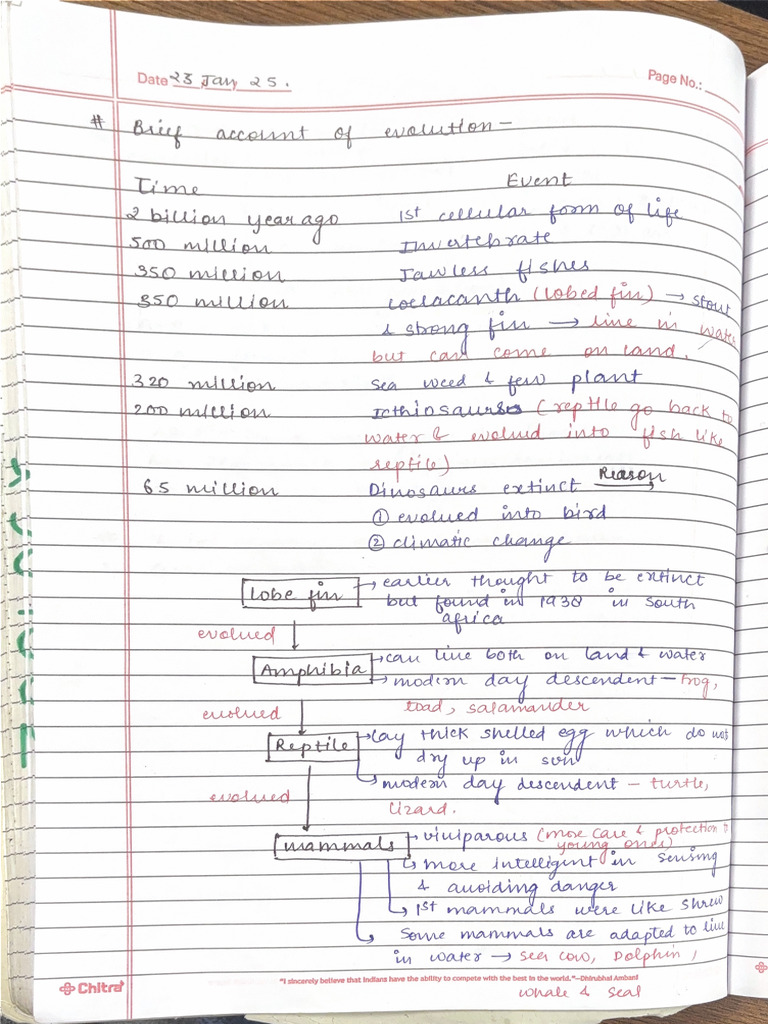 Date 23 Jan 25.
Page No.:
# Brief account of evolution -
Time Event
2 billion year ago 1st cellular form of life
500 million Invertebrate
350 million Jawless fishes
350 million Coelacanth (lobed fin) → stout
& strong fin → live in water
but can come on land.
320 million Sea weed & few plant
200 million Icthiosaurs (reptile go back to
water & evolved into fish like
reptile)
65 million Dinosaurs extinct Reason →
① evolved into bird
② climatic change
Lobe fin → earlier thought to be extinct
but found in 1938 in south
africa
evolved
Amphibia → can live both on land & water
→ modern day descendent - frog,
toad, salamander
evolved
Reptile → lay thick shelled egg which do not
dry up in sun
→ modern day descendent - turtle,
lizard.
evolved
mammals → viviparous (more care & protection to
young ones)
→ more intelligint in sensing
& avoiding danger
→ 1st mammals were like shrew
→ Some mammals are adapted to live
in water → sea cow, Dolphin,
whale & seal
Chitra
"I sincerely believe that Indians have the ability to compete with the best in the world."–Dhirubhai Ambani